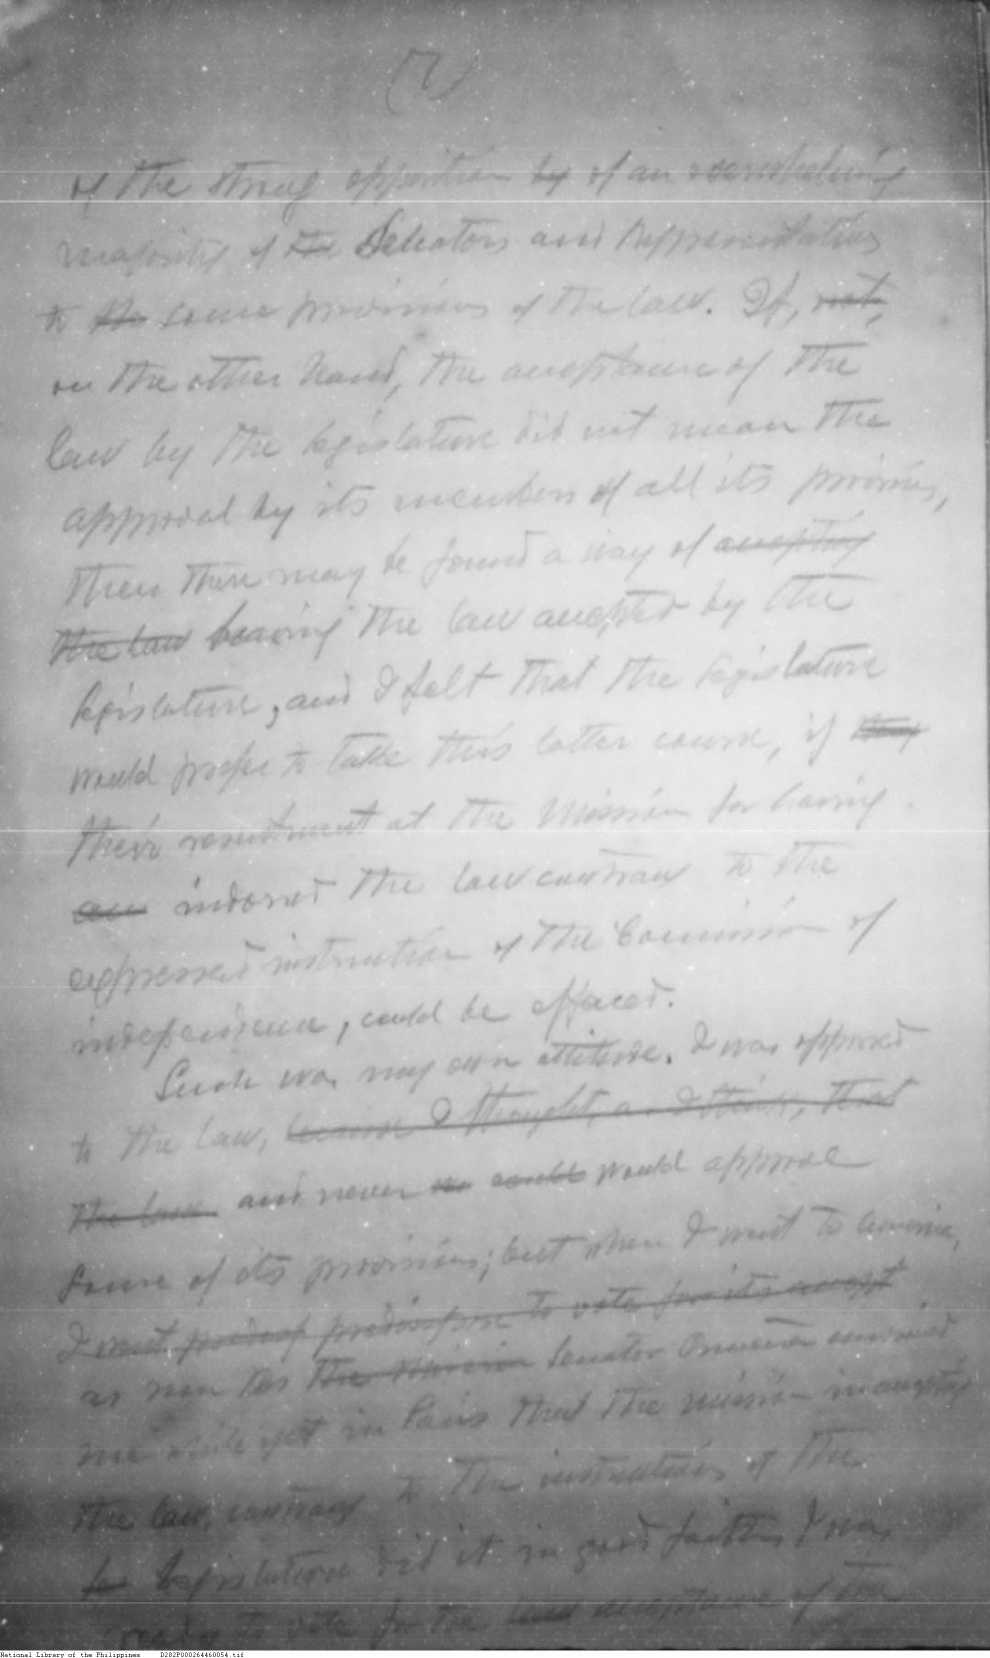 (7)
of the strong opposition by of an overwhelming
majority of the Senators and Representatives
to the some provisions of the law. If, not,
on the other hand, the acceptance of the
law by the legislature did not mean the
approval by its members of all its provisions,
then there may be found a way of accepting
the law having the law accepted by the
legislature, and I felt that the legislature
would prefer to take this latter course, if they
their resentment at the Mission for having
indorsed the law contrary to the
expressed instruction of the Commission of
independence, could be effaced.
Such was my own attitude. I was opposed
to the law, because I thought, that
the law and never could would approve
some of its provisions; but when I went to America,
I went predispose to vote for its accept
as soon as the Mission Senator Osmeña convinced
me while yet in Paris that the mission in accepting
the law, contrary to the instructions of the
Legislature did it in good faith, I was
ready to vote for the acceptance of the
National Library of the Philippines D282P000264460054.tif